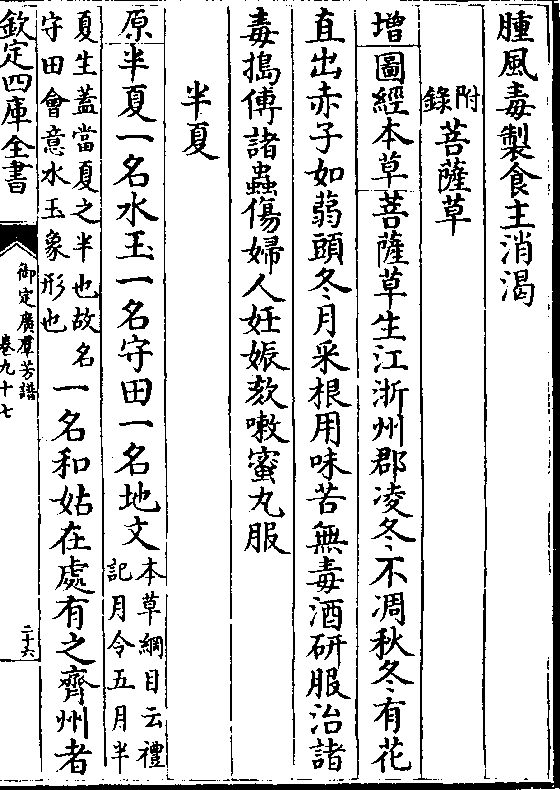 腫風毒製食主消渴
附錄菩薩草
增圖經本草菩薩草生江浙州郡凌冬不凋秋冬有花
直出赤子如蒻頭冬月采根用味苦無毒酒研服治諸
毒搗傅諸蟲傷婦人妊娠欬嗽蜜丸服
半夏
原半夏一名水玉一名守田一名地文本草綱目云禮記月令五月半
夏生蓋當夏之半也故名守田會意水玉象形也一名和姑在處有之齊州者
欽定四庫全書
御定廣羣芳譜
卷九十七
二十六